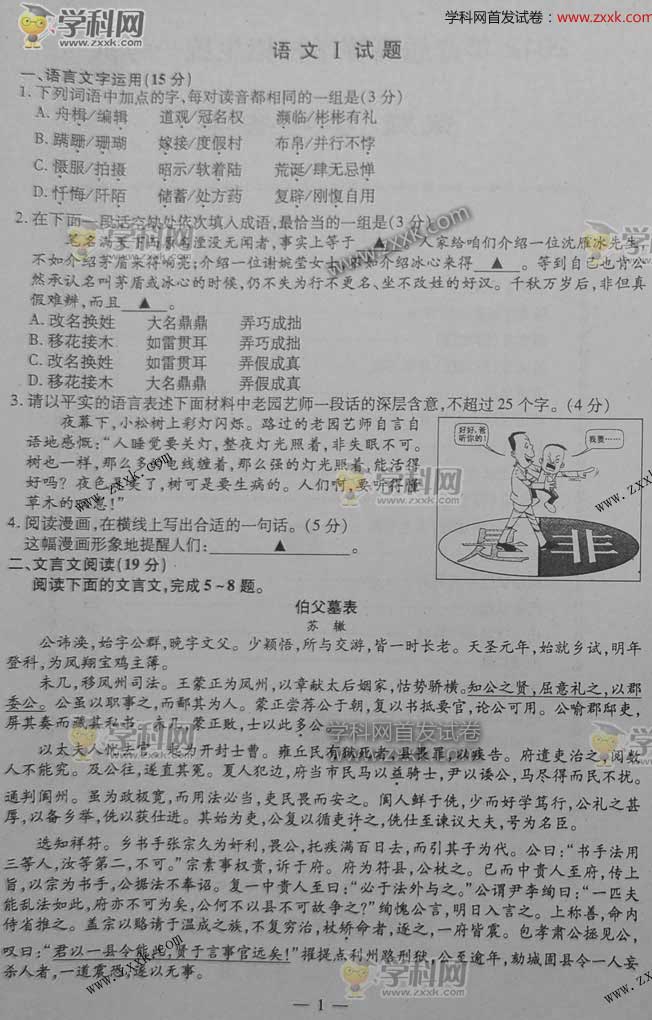 学科网首发试卷：www.zxxk.com
学科网
www.zxxk.com
语文Ⅰ试题
一、语言文字运用(15分)
1. 下列词语中加点的字,每对读音都相同的一组是(3分)
A. 舟楫/编辑 道观/冠名权 濒临/彬彬有礼
B. 蹒跚/珊瑚 嫁接/度假村 布帛/并行不悖
C. 慑服/拍摄 昭示/软着陆 荒诞/肆无忌惮
D. 忏悔/阡陌 储蓄/处方药 复辟/刚愎自用
2. 在下面一段话空缺处依次填入成语,最恰当的一组是(3分)
笔名满天下而原名湮没无闻者,事实上等于 ▲ 。人家给咱们介绍一位沈雁冰先生,
不如介绍茅盾来得响亮;介绍一位谢婉莹女士,不如介绍冰心来得 ▲ 。等到自己也肯公
然承认名叫茅盾或冰心的时候,仍不失为行不更名、坐不改姓的好汉。千秋万岁后,非但真
假难辨,而且 ▲ 。
A. 改名换姓 大名鼎鼎 弄巧成拙
B. 移花接木 如雷贯耳 弄巧成拙
C. 改名换姓 如雷贯耳 弄假成真
D. 移花接木 大名鼎鼎 弄假成真
3. 请以平实的语言表述下面材料中老园艺师一段话的深层含意,不超过25个字。(4分)
夜幕下,小松树上彩灯闪烁。路过的老园艺师自言自
语地感慨:“人睡觉要关灯,整夜灯光照着,非失眠不可。
树也一样,那么多的电线缠着,那么强的灯光照着,能活得
好吗?夜色变了,树可是要生病的。人们啊,要听得懂
草木的叹息!”
4. 阅读漫画,在横线上写出合适的一句话。(5分)
这幅漫画形象地提醒人们: ▲ 。
好好,爸听你的!
我要……
是
非
二、文言文阅读(19分)
阅读下面的文言文,完成5~8题。
伯父墓表
苏 辙
公讳涣,始字公群,晚字文父。少颖悟,所与交游,皆一时长老。天圣元年,始就乡试,明年
登科,为凤翔宝鸡主簿。
未几,移凤州司法。王蒙正为凤州,以章献太后姻家,怙势骄横。知公之贤,屈意礼之,以郡
委公。公虽以职事之,而鄙其为人。蒙正尝荐公于朝,复以书抵要官,论公可用。公喻郡邸吏,
屏其奏而藏其私书。未几,蒙正败,士以此多公。
以太夫人忧去官,起为开封士曹。雍丘民有狱死者,县畏罪,以疾告。府遣吏治之,阅数
人不能究。及公往,遂直其冤。夏人犯边,府当市民马以益骑士,尹以诿公,马尽得而民不扰。
通判阆州。虽为政极宽,而用法必当,吏民畏而安之。阆人鲜于侁,少而好学笃行,公礼之甚
厚,以备乡举,侁以获仕进。其始为吏,公复以循吏许之,侁仕至谏议大夫,号为名臣。
选知祥符。乡书手张宗久为奸利,畏公,托疾满百日去,而引其子为代。公曰:“书手法用
三等人,汝等第二,不可。”宗素事权贵,诉于府。府为符县,公杖之。已而中贵人至府,传上
旨,以宗为书手,公据法不奉诏。复一中贵人至曰:“必于法外与之。”公谓尹李绚曰:“一匹夫
能乱法如此,府亦不可为矣,公何不以县不可故争之?”绚愧公言,明日入言之。上称善,命内
侍省推之。盖宗以赂请于温成之族,不复穷治,杖矫命者,逐之,一府皆震。包孝肃公拯见公,
叹曰:“君以一县令能此,贤于言事官远矣!”擢提点利州路刑狱,公至逾年,劾城固县令一人妄
杀人者,一道震恐,遂以无事。
学科网首发试卷
www.zxxk.com
— 1 —